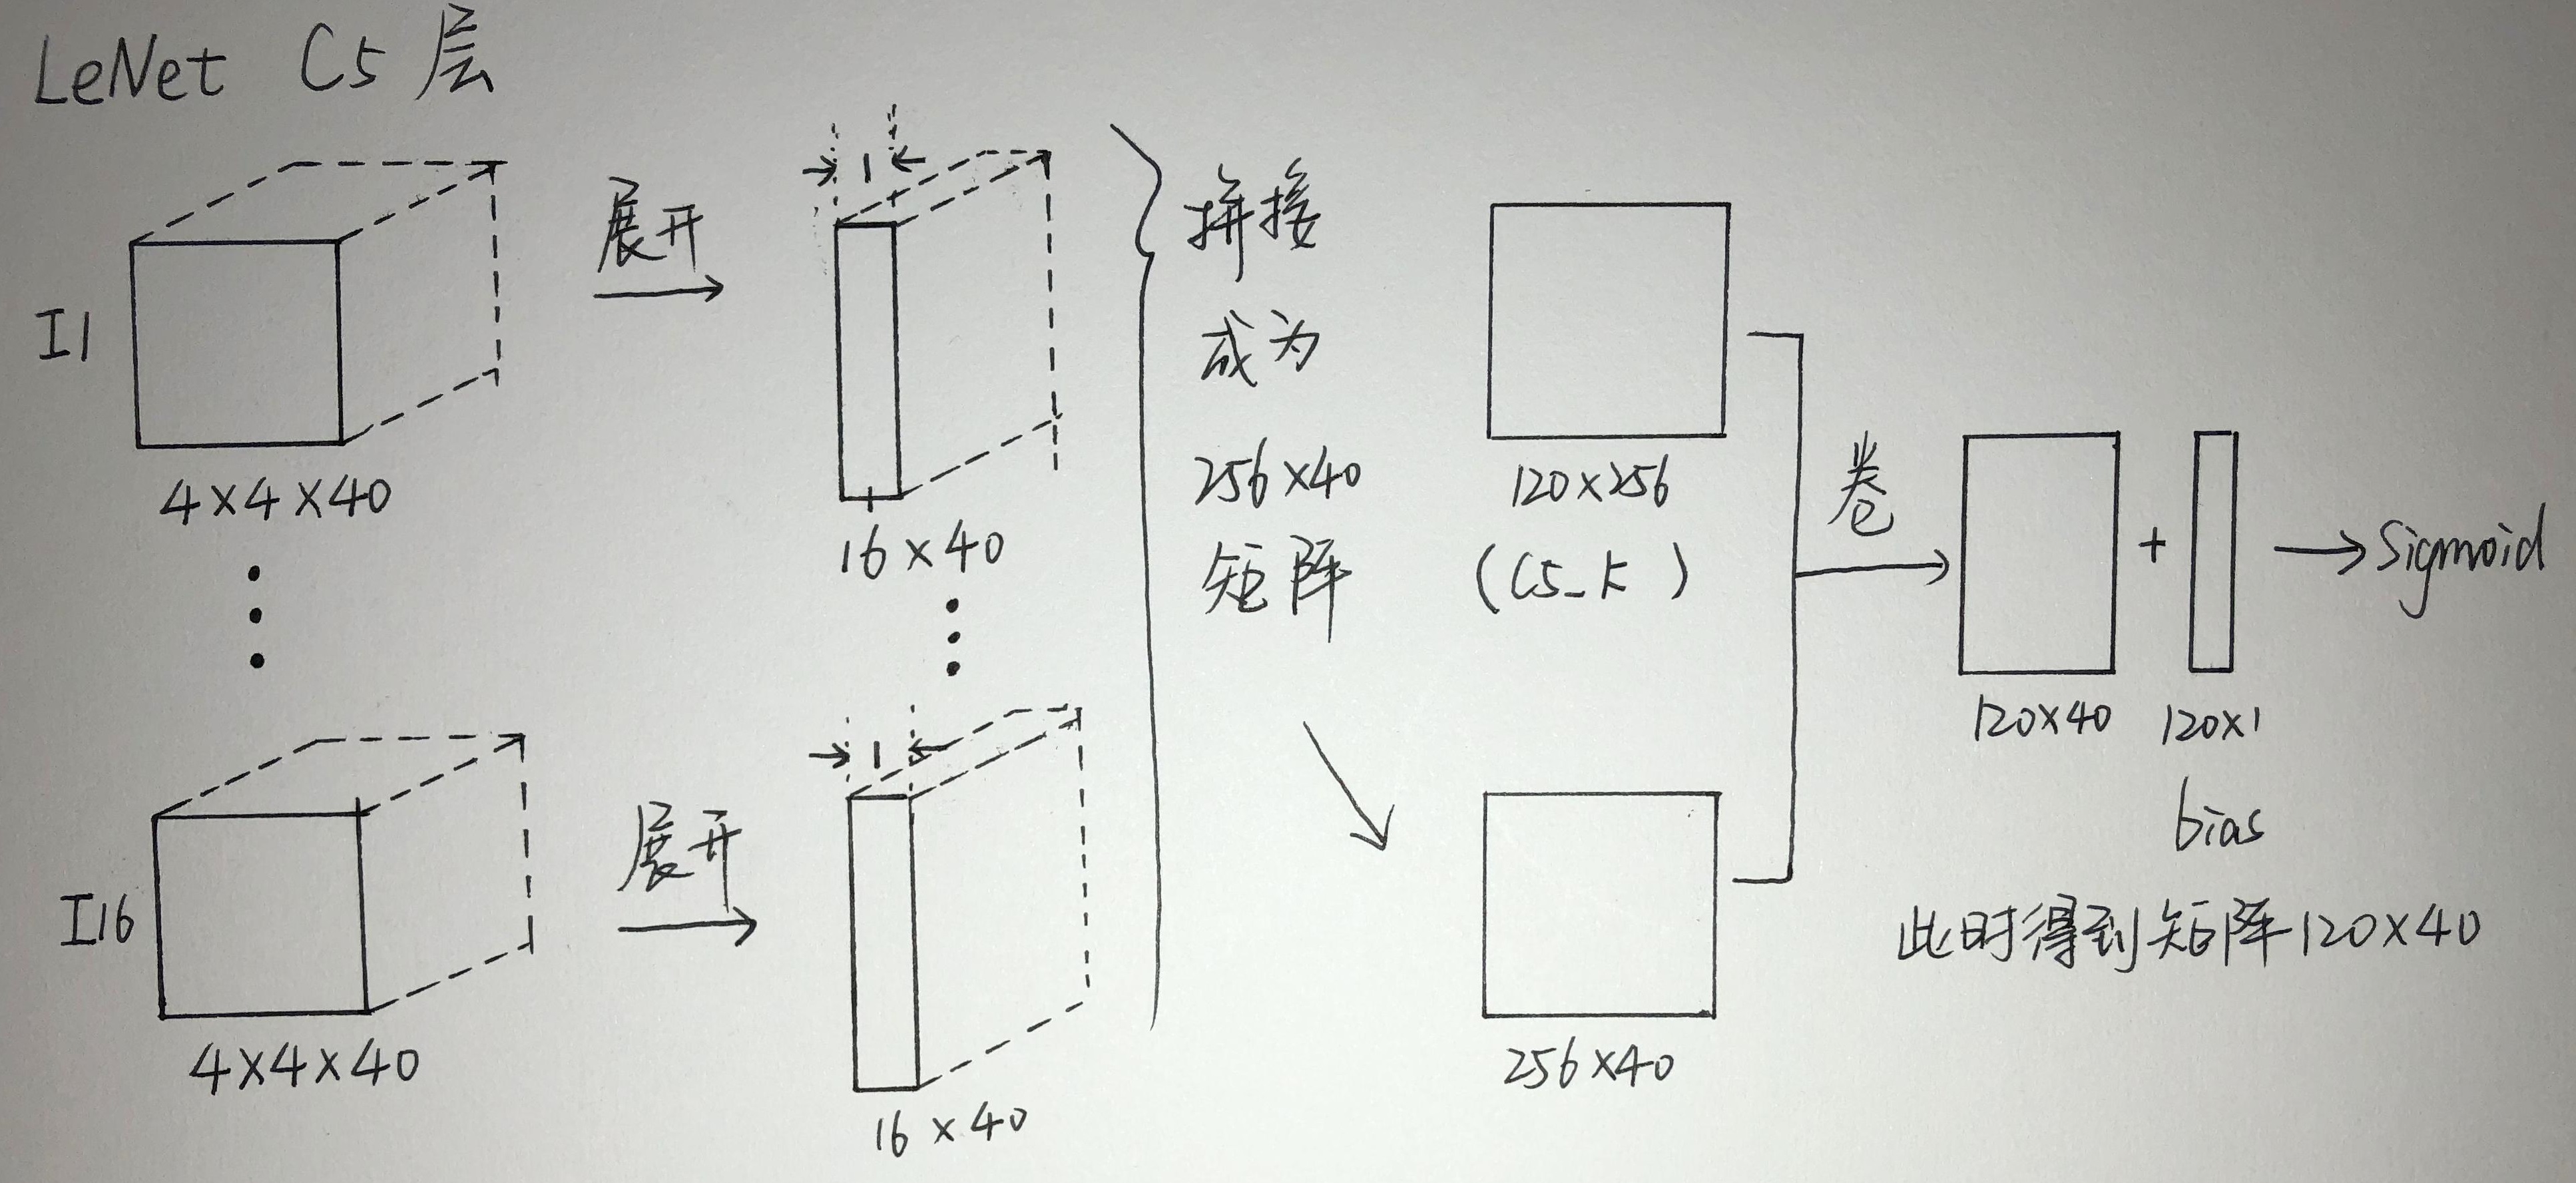 LeNet C5 层
I1
4×4×40
展开
1
16×40
I16
4×4×40
展开
1
16×40
拼接
成为
256×40
矩阵
120×256
(C5_k)
256×40
卷
120×40
+
120×1
bias
Sigmoid
此时得到矩阵120×40